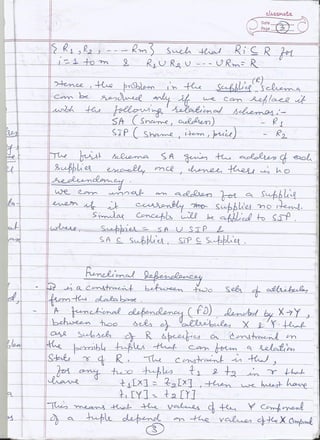 classmate
Date
Page 3
{ R1, R2, --- Rm } such that Ri ⊆ R for
i=1 to m & R1 ∪ R2 ∪ --- ∪ Rm = R
Hence, the problem in the supplier (R) schema
can be resolved only if we can replace it
with the following relational schemas:-
SA (Sname, address) - R1
SIP (Sname, item, price) - R2
The first schema SA gives the address of each
supplier exactly once, hence there is no
redundancy.
We can insert an address for a supplier
even if it currently supplies no item.
Similar concepts will be applied to SIP.
where, Supplier = SA ∪ SIP &
SA ⊆ Supplier, SIP ⊆ Supplier.
Functional Dependency
- It is a constraint between two sets of attributes
from the database.
- A functional dependency (FD), denoted by X→Y,
between two sets of attributes X & Y that
are subsets of R specifies a constraint on
the possible tuples that can form a relation
state r of R. The constraint is that,
for any two tuples t1 & t2 in r that
have t1[X] = t2[X], then we must have
t1[Y] = t2[Y]
This means that the values of the Y component
of a tuple depend on the values of the X component
3